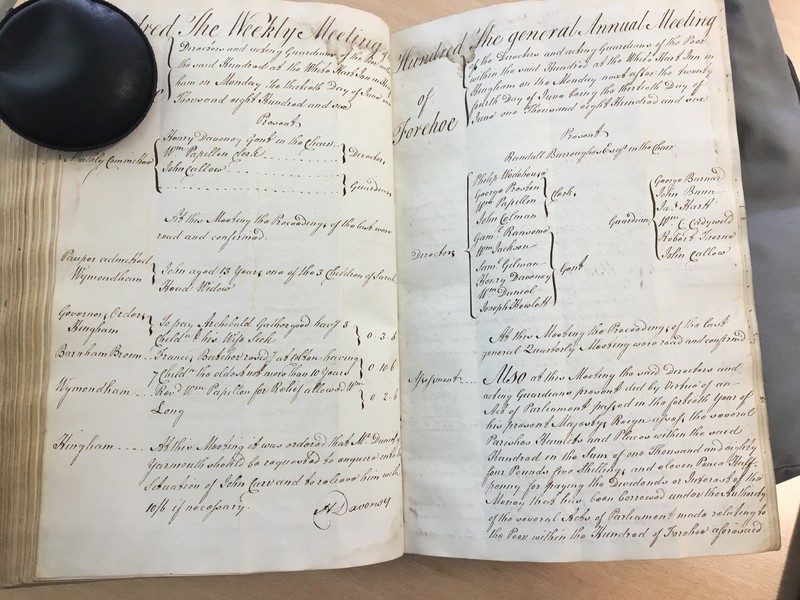 Hundred The Weekly Meeting of
Directors and acting Guardians of the Poor
the said Hundred at the White Hart Inn in
ham on Monday the thirtieth Day of June one
Thousand eight Hundred and six
Present
Weekly Committee
Henry Davoney Gent in the Chair
Wm Papillon Clerk
John Callow
Directors
Guardians
At this Meeting the Proceedings of the last were
read and confirmed.
Pauper admitted
Wymondham
John aged 13 Years one of the 3 Children of Sarah
Head Widow
Governors Orders
Hingham
To pay Archibald Gathergood havg 3
Childn & his Wife Sick
0 . 3 . 6
Barnham Broom
Frances Butcher resdg at having
7 Childn the eldest not more than 10 Years
0 . 10 . 6
Wymondham
Revd Wm Papillon for Relief allowed Wm
Long
0 . 2 . 6
Hingham
At this Meeting it was ordered that Mr Daniel
Yarmouth should be requested to enquire into
Situation of John and to relieve him with
10/6 if necessary.
H Davoney
Hundred
of
Forehoe
The general Annual Meeting
of the Directors and acting Guardians of the Poor
within the said Hundred at the White Hart Inn in
Hingham on the Monday next after the twenty
fourth Day of June being the thirtieth Day of
June one Thousand eight Hundred and six
Present
Randall Burroughes Esqr in the Chair
Directors
Philip Wodehouse
George Preston
Wm Papillon
John Colman
Clerks
Saml Ransome
Wm Jackson
Saml Gilman
Henry Davoney
Wm Daniel
Joseph Howlett
Gent
Guardians
George Barnard
John Bunn
Jas Hart
Wm C
Robert Thorne
John Callow
At this Meeting the Proceedings of the last
general Quarterly Meeting were read and confirmed
Assessment
Also at this Meeting the said Directors and
acting Guardians present did by Virtue of an
Act of Parliament passed in the fortieth Year of
his present Majestys Reign assess the several
Parishes Hamlets and Places within the said
Hundred in the Sum of one Thousand and eighty
four Pounds five Shillings and eleven Pence Half-
penny for paying the Dividends or Interest of the
Money that has been borrowed under the Authority
of the several Acts of Parliament made relating to
the Poor within the Hundred of Forehoe aforesaid